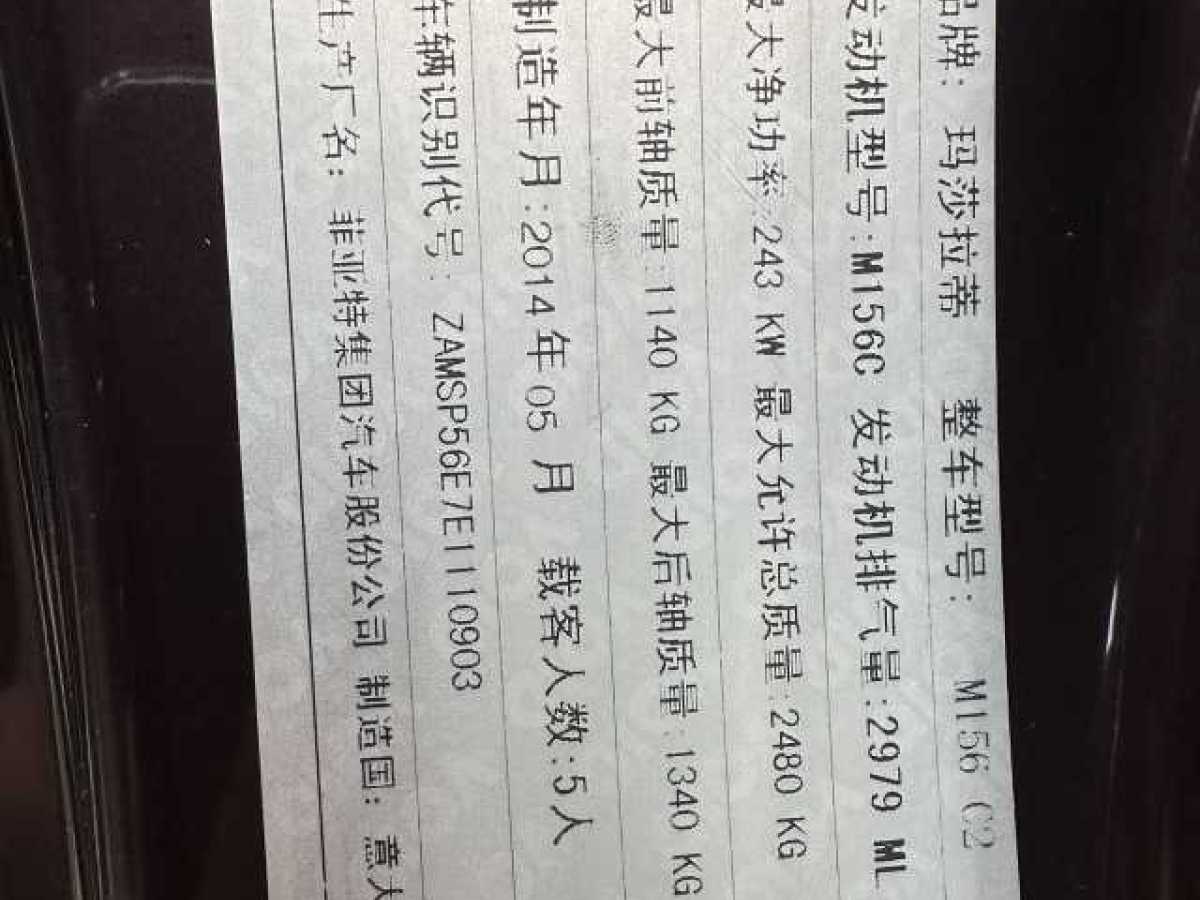 品牌: 玛莎拉蒂 整车型号: M156 (C2
发动机型号:M156C 发动机排气量:2979 ML
最大净功率:243 KW 最大允许总质量:2480 KG
最大前轴质量:1140 KG 最大后轴质量:1340 KG
制造年月:2014年05月 载客人数:5人
车辆识别代号: ZAMSP56E7E1110903
生产厂名: 菲亚特集团汽车股份公司 制造国: 意大